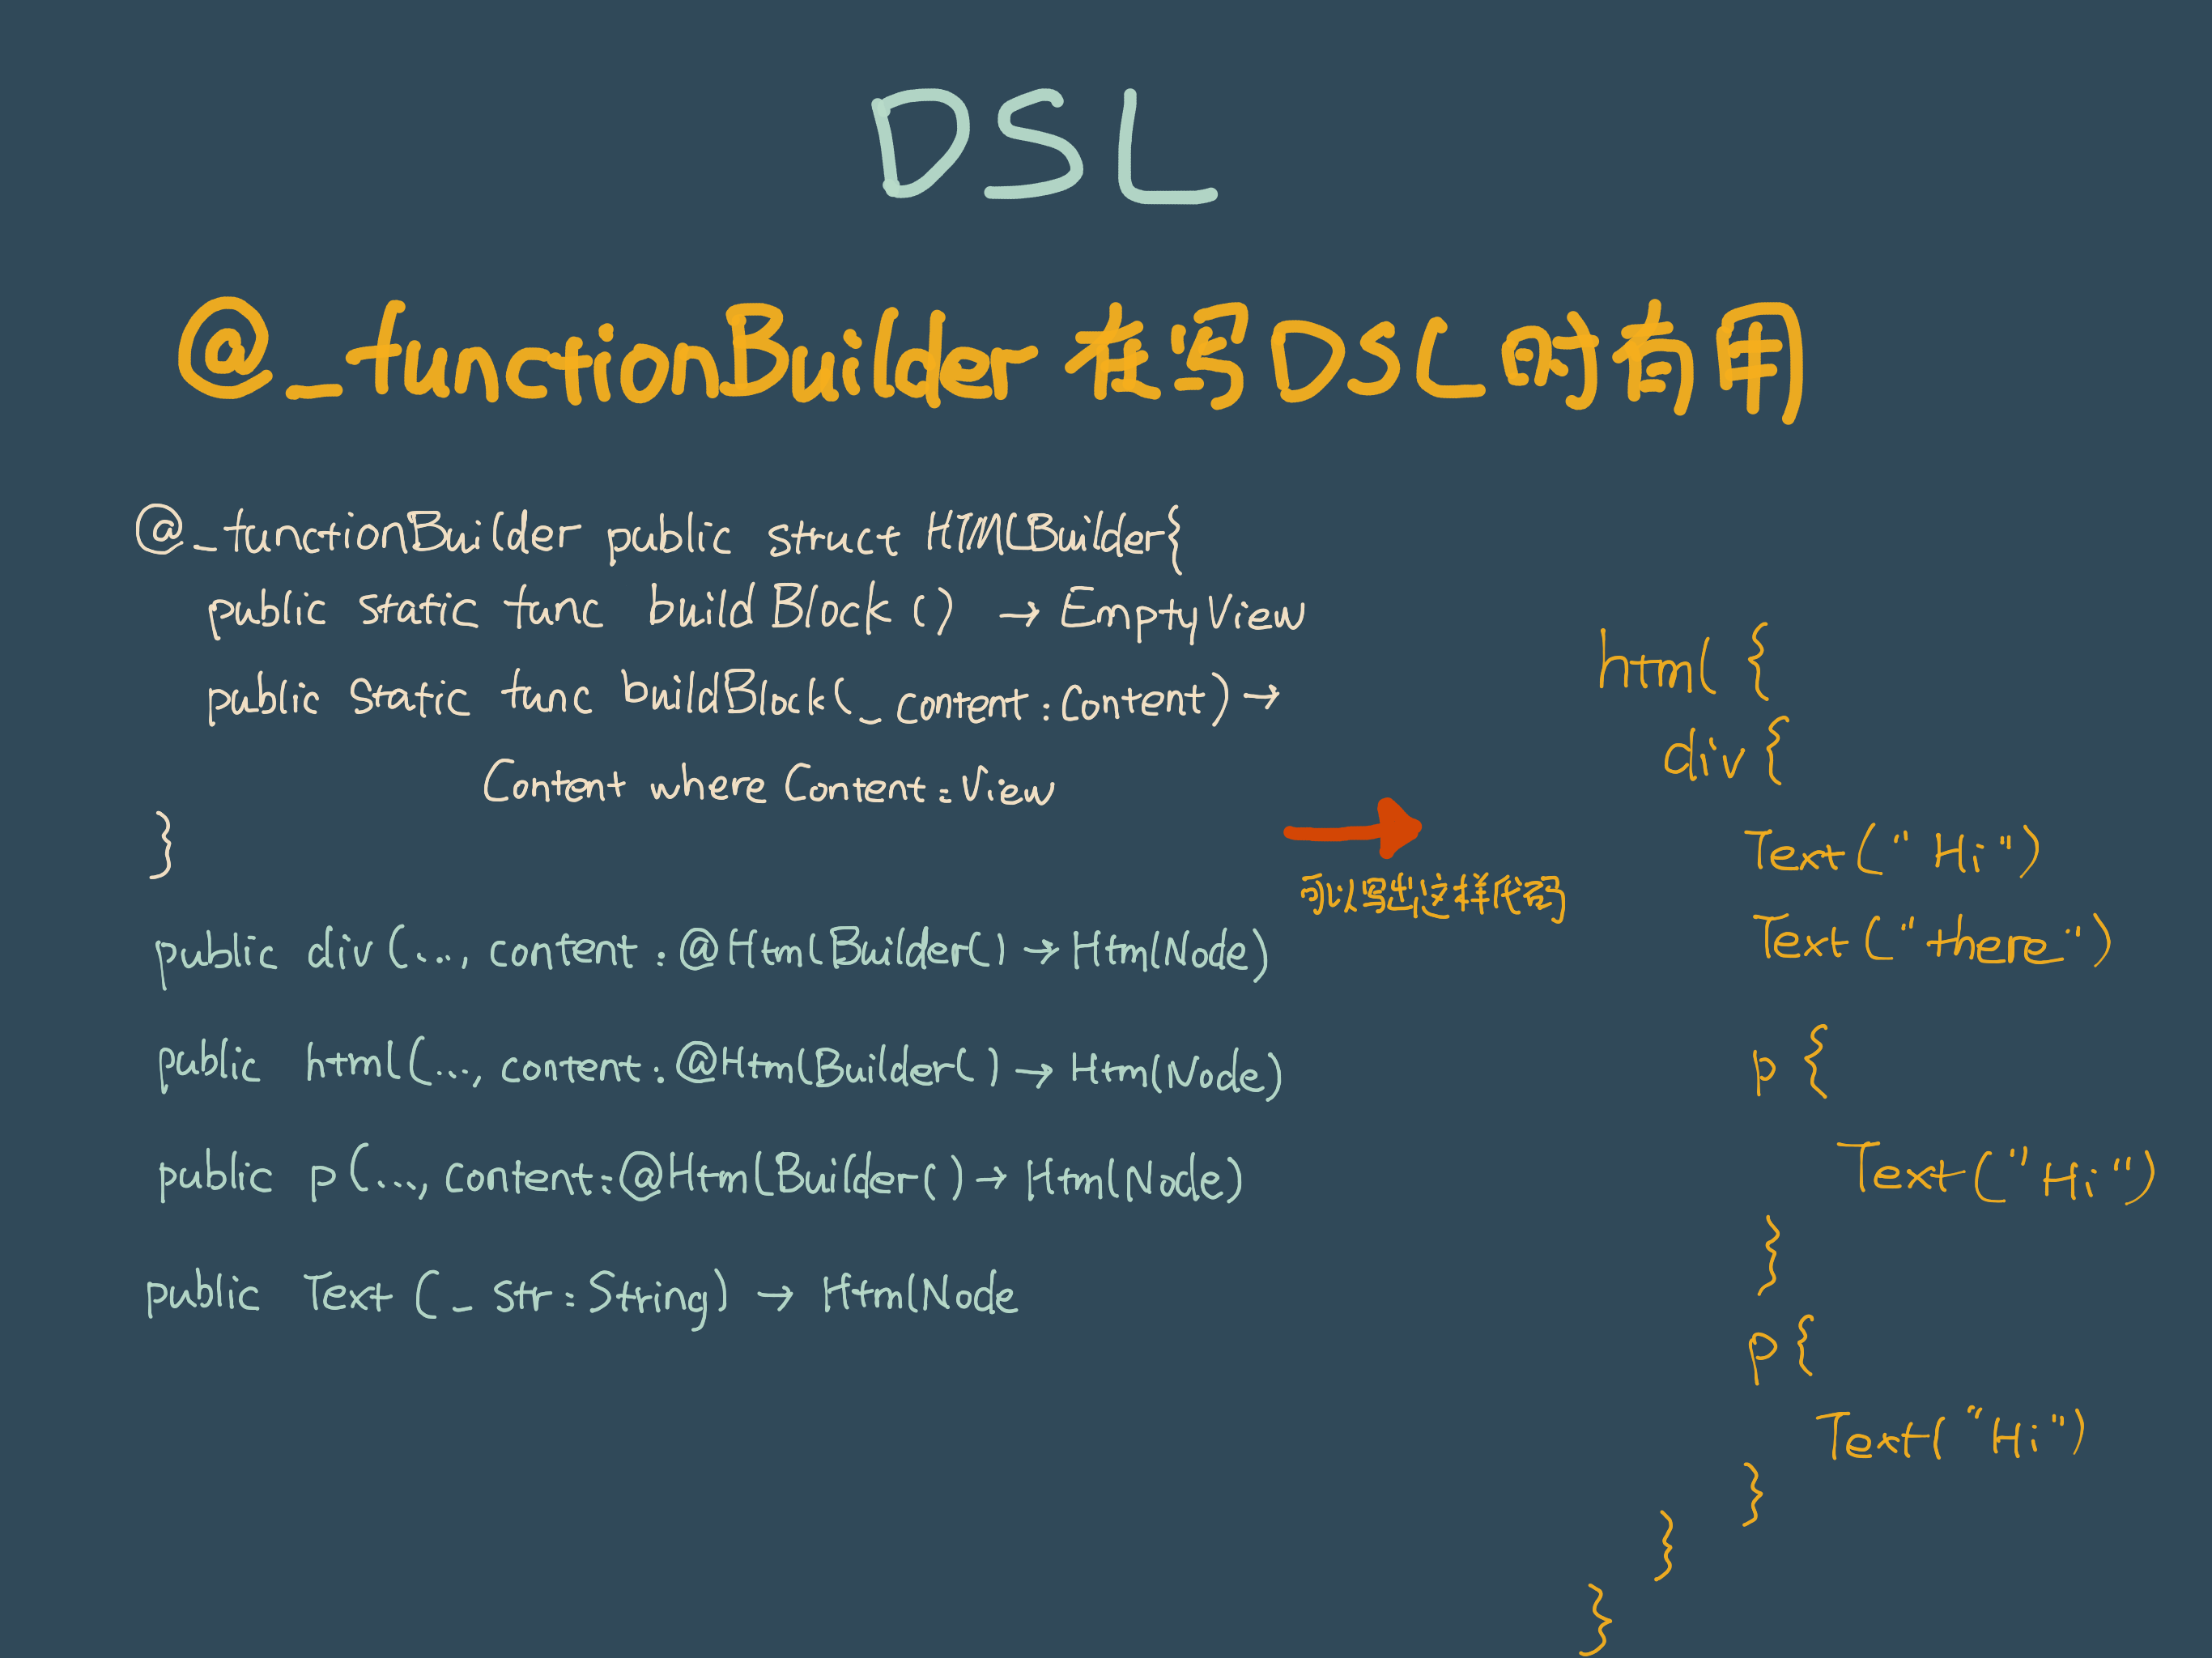 DSL
@_functionBuilder 在写DSL时有用
@_functionBuilder public struct HTMLBuilder{
public static func buildBlock() → EmptyView
public static func buildBlock(_ content: Content) →
Content where Content: View
}
public div(..., content: @HtmlBuilder() → HtmlNode)
public html(..., content: @HtmlBuilder() → HtmlNode)
public p(..., content: @HtmlBuilder() → HtmlNode)
public Text (_ str: String) → HtmlNode
可以写出这样代码
html {
div {
Text("Hi")
Text("there")
p {
Text("Hi")
}
p{
Text("Hi")
}
}
}